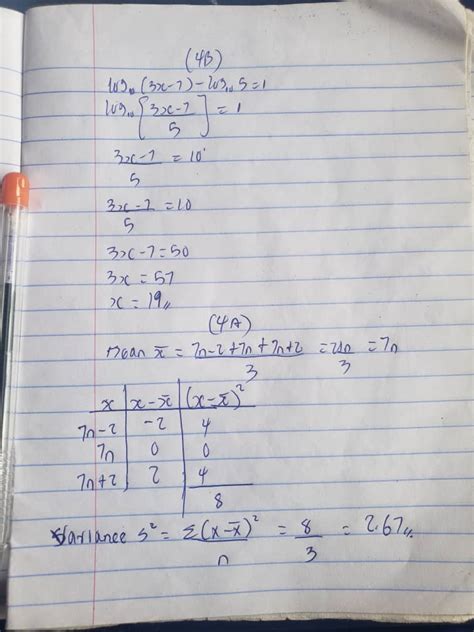 (4B)
log₁₀(3x-7)-log₁₀5=1
log₁₀[3x-7/5]=1
3x-7/5=10¹
3x-7/5=10
3x-7=50
3x=57
x=19//
(4A)
Mean x̄ = 7n-2+7n+7n+2/3 =21n/3 =7n
x | x-x̄ | (x-x̄)²
7n-2 | -2 | 4
7n | 0 | 0
7n+2 | 2 | 4
8
Variance S² = Σ(x-x̄)²/n = 8/3 = 2.67//